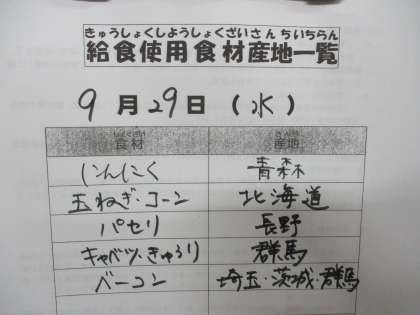 きゅうしょくしようしょくざいさんちいちらん
給食使用食材産地一覧
9月29日（水）
食材 産地
にんにく 青森
玉ねぎ・コーン 北海道
パセリ 長野
キャベツ・きゅうり 群馬
ベーコン 埼玉・茨城・群馬